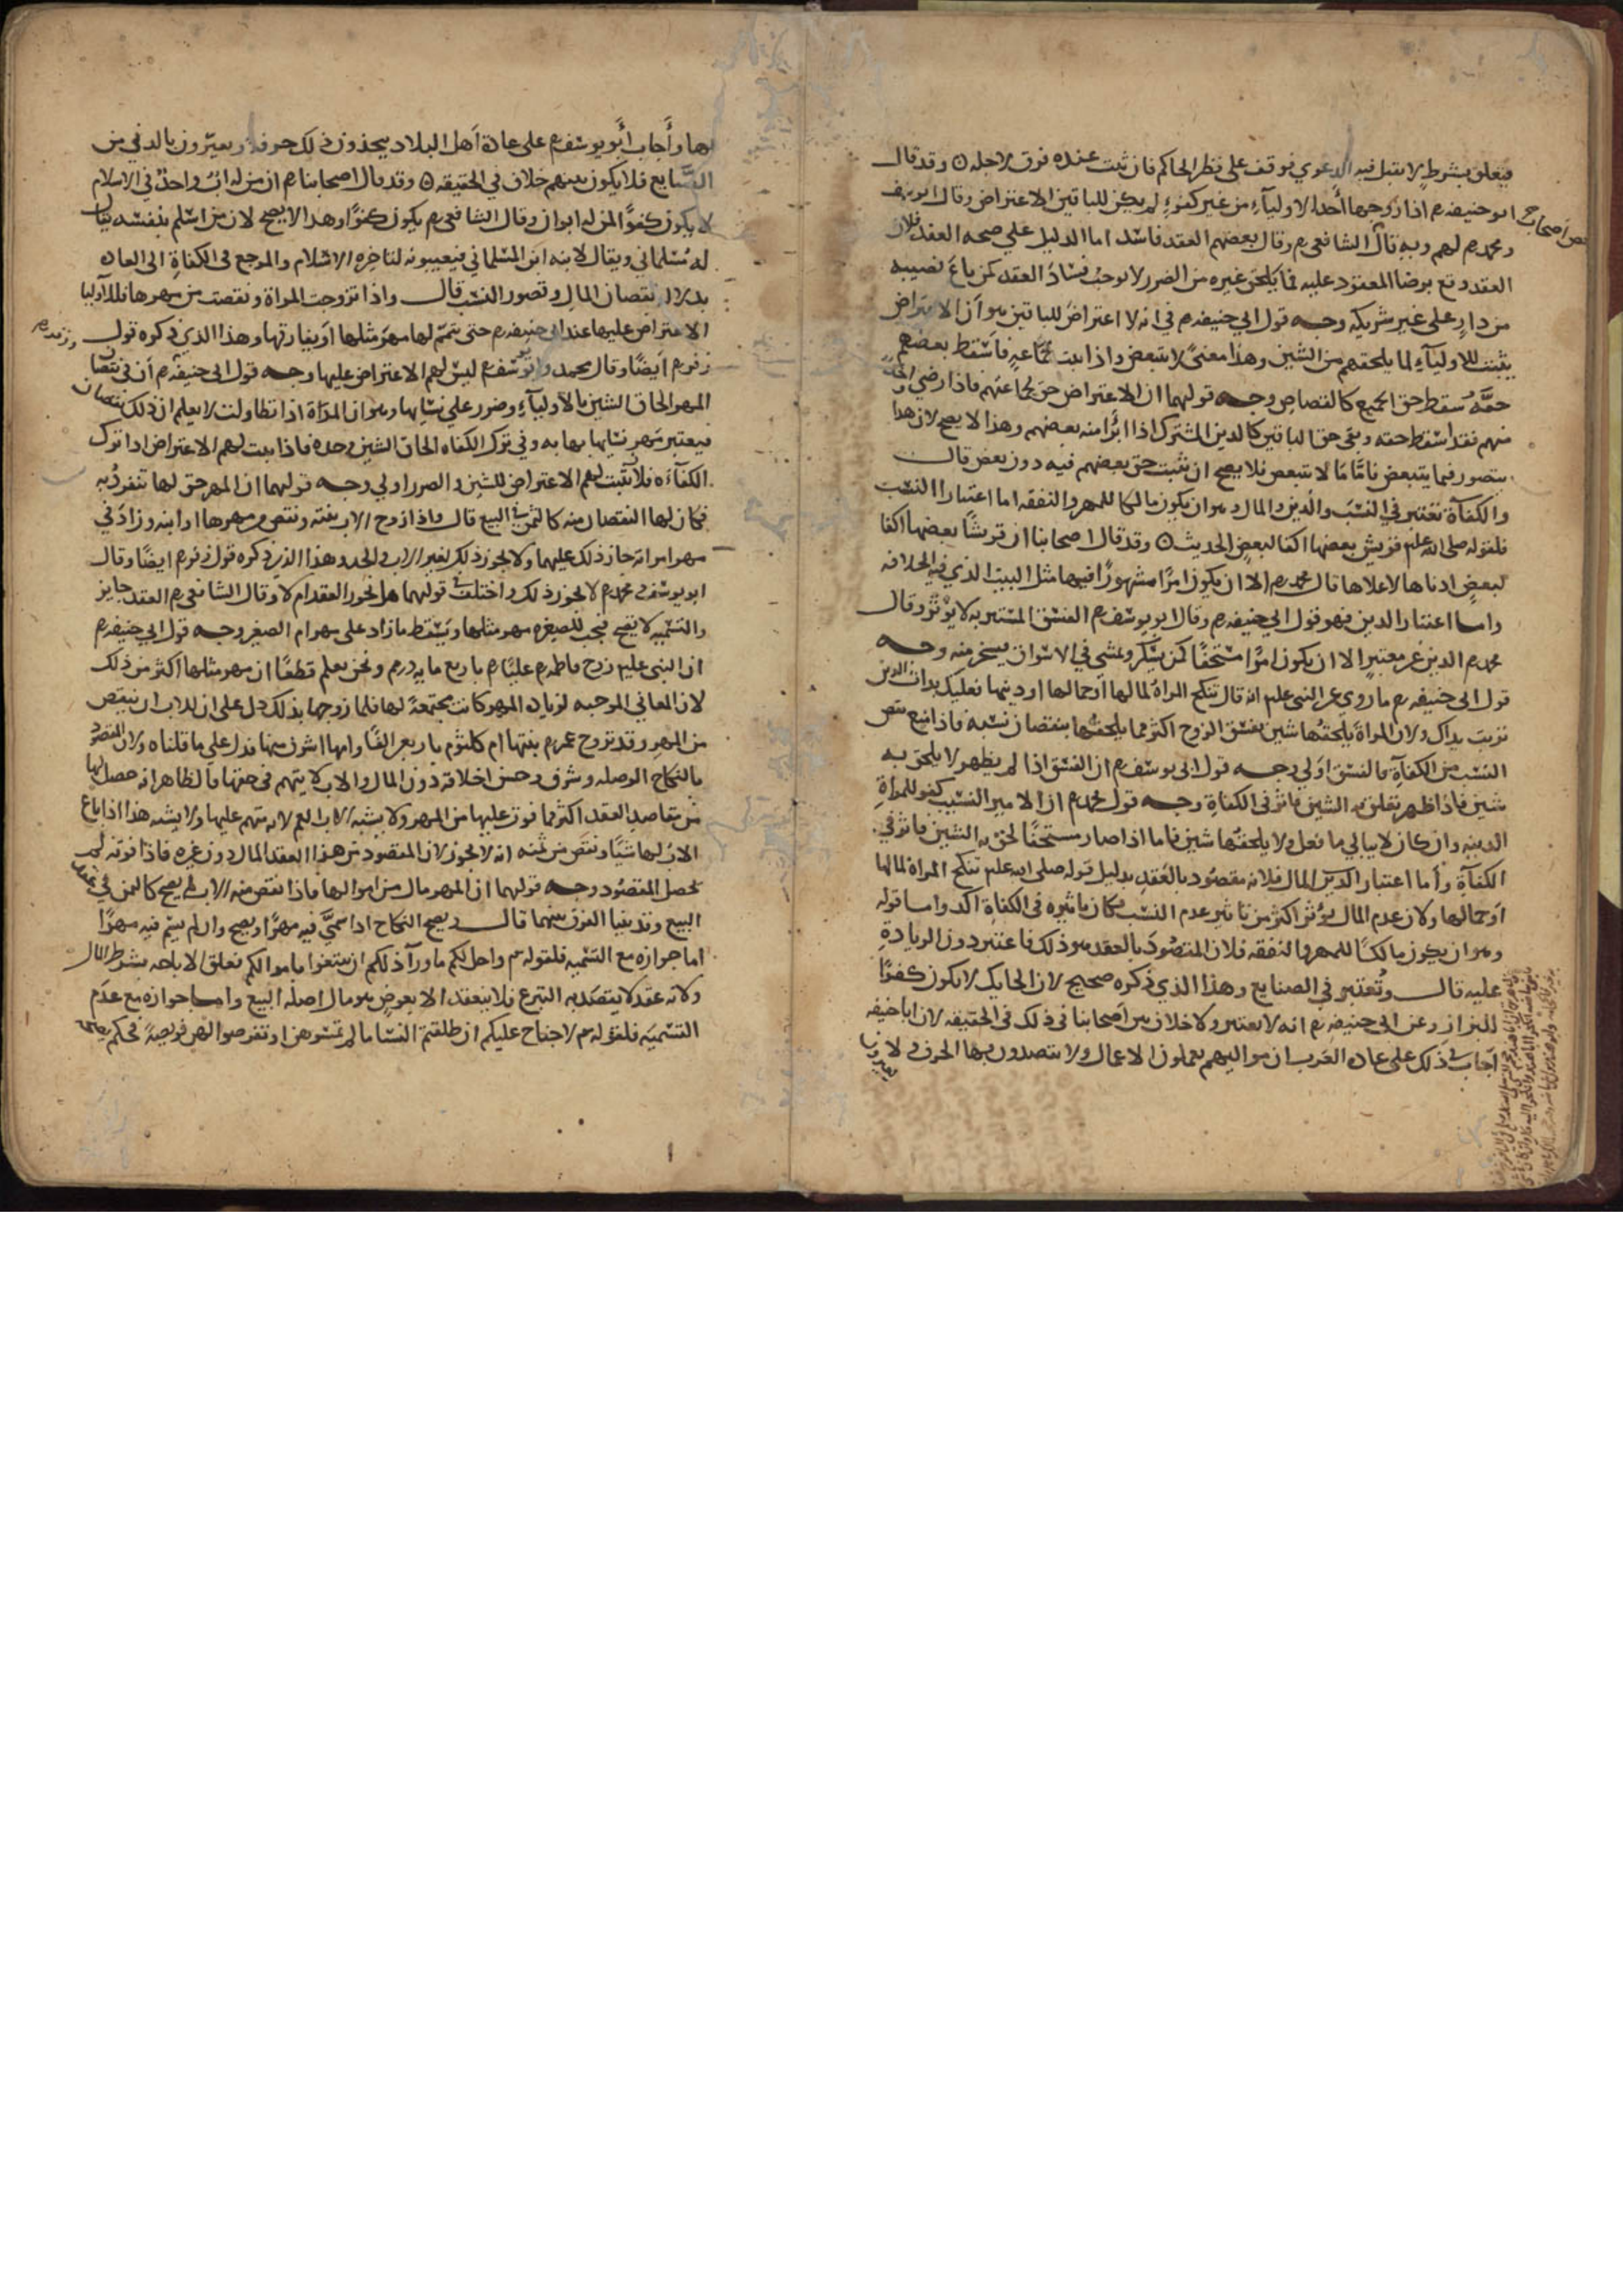 فيعلق بشرط لا يقبل فيه الدعوي فوقف على نظر الحاكم فان ثبت عنده فرق لاجله وقد قال
ابو حنيفه رم اذا زوجها أحد الاولياء من غير كفوء لم يكن للباقين الاعتراض وقال ابو يوسف
ومحمد رم لهم وبه قال الشافعي رم وقال بعضهم العقد فاسد اما الدليل علي صحه العقد فلان
العقد وقع برضا المعقود عليه فما يلحق غيره من الضرر لا يوجب فساد العقد كمن باع نصيبه
من دار على غير شريكه وجه قول ابي حنيفه رم في انه لا اعتراض للباقين هو أن الاعتراض
يثبت للاولياء لما يلحقهم من الشين وهذا معنى لا يتبعض واذا ثبت لجماعه فاسقط بعضهم
حقه سقط حق الجميع كالقصاص وجه قولهما ان الاعتراض حق لجماعتهم فاذا رضي
منهم فقد اسقط حقه وبقى حق الباقين كالدين المشترك اذا ابرأ منه بعضهم وهذا لا يصح لان هذا
يتصور فيما يتبعض فاما ما لا يتبعض فلا يصح ان يثبت حق بعضهم فيه دون بعض قال
والكفآة تعتبر في النسب والدين والمال وهو ان يكون مالكا للمهر والنفقه اما اعتبار النسب
فلقوله صلى الله عليه قريش بعضها اكفا لبعض الحديث وقد قال اصحابنا ان قريشا بعضها اكفا
لبعض ادناها لاعلاها قال محمد رم الا ان يكون امرا مشهورا فيهما مثل البيت الذي فيه الخلافه
واما اعتبار الدين فهو قول ابي حنيفه رم وقال ابو يوسف رم الفسق المستتر به لا يؤثر وقال
محمد رم الدين غير معتبر الا ان يكون امرا مستخفا كمن يسكر ويمشي في الاسواق يسخر منه وجه
قول ابى حنيفه رم ما روى عن النبى عليه انه قال تنكح المراة لمالها او جمالها او دينها فعليك بذات الدين
تربت يداك ولان المراة يلحقها شين بفسق الزوج اكثر مما يلحقها بنقصان نسبه فاذا امنع نقص
النسب من الكفآة فالفسق اولي وجه قول ابى يوسف رم ان الفسق اذا لم يظهر لا يلحق به
شين فاذا ظهر تعلق به الشين فاثر فى الكفاة وجه قول محمد رم ان الامير النسيب كفو للمراة
الدينه وان كان لا يبالي ما فعل ولا يلحقها شين فاما اذا صار مستخفا لحق به الشين فاثر في
الكفآة وأما اعتبار المال فلانه مقصود بالعقد بدليل قوله صلى الله عليه تنكح المراة لمالها
او جمالها ولان عدم المال يؤثر اكثر من تاثير عدم النسب فكان تاثيره فى الكفاة اكد واما قوله
وهو ان يكون مالكا للمهر والنفقه فلان المقصود بالعقد هو ذلك فاعتبر دون الزيادة
عليه قال وتعتبر في الصنايع وهذا الذي ذكره صحيح لان الحايك لا يكون كفوا
للبزاز وعن ابى حنيفه رم انه لا يعتبر ولا خلاف بين اصحابنا فى ذلك فى الحقيقه لان ابا حنيفه
أجاب فى ذلك على عادة العرب ان مواليهم يعملون الاعمال ولا يقصدون بها الحرف ولا
بها وأجاب أبو يوسف رم على عادة أهل البلاد يتخذون ذلك حرفة ويعيرون بالدني من
الصنايع فلا يكون بينهم خلاف في الحقيقه وقد قال اصحابنا رم ان من له اب واحد في الاسلام
لا يكون كفوا لمن له ابوان وقال الشافعى رم يكون كفوا وهذا لا يصح لان من اسلم بنفسه يقال
له مسلماني ويقال لابنه ابن المسلماني فيعيبونه لتاخره الاسلام والمرجع فى الكفاة الى العادة
بدلاله نقصان المال وقصور النسب قال واذا تزوجت المراة ونقصت من مهرها فللاوليا
الاعتراض عليها عند ابى حنيفه رم حتى يتمم لها مهر مثلها او يفارقها وهذا الذي ذكره قول
زفر رم ايضا وقال محمد وابو يوسف رم ليس لهم الاعتراض عليها وجه قول ابى حنيفه رم أن فى نقصان
المهر الحاق الشين بالاولياء وضرر علي نسايها وهو ان المراة اذا تطاولت لا يعلم ان ذلك نقصان
فيعتبر مهر نسايها بها به وفي ترك الكفاه الحاق الشين وحده فاذا ثبت لهم الاعتراض اذا ترك
الكفآه فلان يثبت لهم الاعتراض للشين والضرر اولي وجه قولهما ان المهر حق لها تنفرد به
فكان لها النقصان منه كالثمن في البيع قال واذا زوج الاب بنته ونقص من مهرها او ابنه وزاد فى
مهر امراته جاز ذلك عليهما ولا يجوز ذلك لغير الاب والجد وهذا الذي ذكره قول زفر رم ايضا وقال
ابو يوسف ومحمد رم لا يجوز ذلك واختلف قولهما هل يجوز العقد ام لا وقال الشافعى رم العقد جايز
والتسميه لا تصح فيجب للصغيره مهر مثلها ويسقط ما زاد على مهر ام الصغير وجه قول ابي حنيفه رم
ان النبي عليه زوج فاطمه رم عليا رم باربع مايه درهم ونحن نعلم قطعا ان مهر مثلها اكثر من ذلك
لان المعاني الموجبه لزياده المهر كانت مجتمعة لها فلما زوجها بذلك دل على ان للاب ان ينقص
من المهر وقد تزوج عمر رم بنتها ام كلثوم باربعين الفا وامها اشرف منها فدل على ما قلناه ولان المقصود
بالنكاح الوصله وشرف وحسن اخلاقه دون المال والاب لا يتهم في حقها فالظاهر انه حصل لها
من مقاصد العقد اكثر مما فوت عليها من المهر ولا يشبه الاب العم لانه متهم عليها ولا يشبه هذا اذا باع
الاب لها شيا ونقص من ثمنه انه لا يجوز لان المقصود من هذا العقد المال دون غيره فاذا فوته لم
يحصل المقصود وجه قولهما ان المهر مال من اموالها فاذا نقص منه الاب لم يصح كالثمن في
البيع وقد بينا الفرق بينهما قال ويصح النكاح اذا سمى فيه مهرا ويصح وان لم يسم فيه مهرا
اما جوازه مع التسميه فلقوله واحل لكم ما ورآ ذلكم ان تبتغوا باموالكم فعلق الاباحه بشرط المال
ولانه عقد لا يقصد به التبرع فلا ينعقد الا بعوض هو مال اصله البيع واما جوازه مع عدم
التسميه فلقوله لا جناح عليكم ان طلقتم النسا ما لم تمسوهن او تفرضوا لهن فريضة فحكم